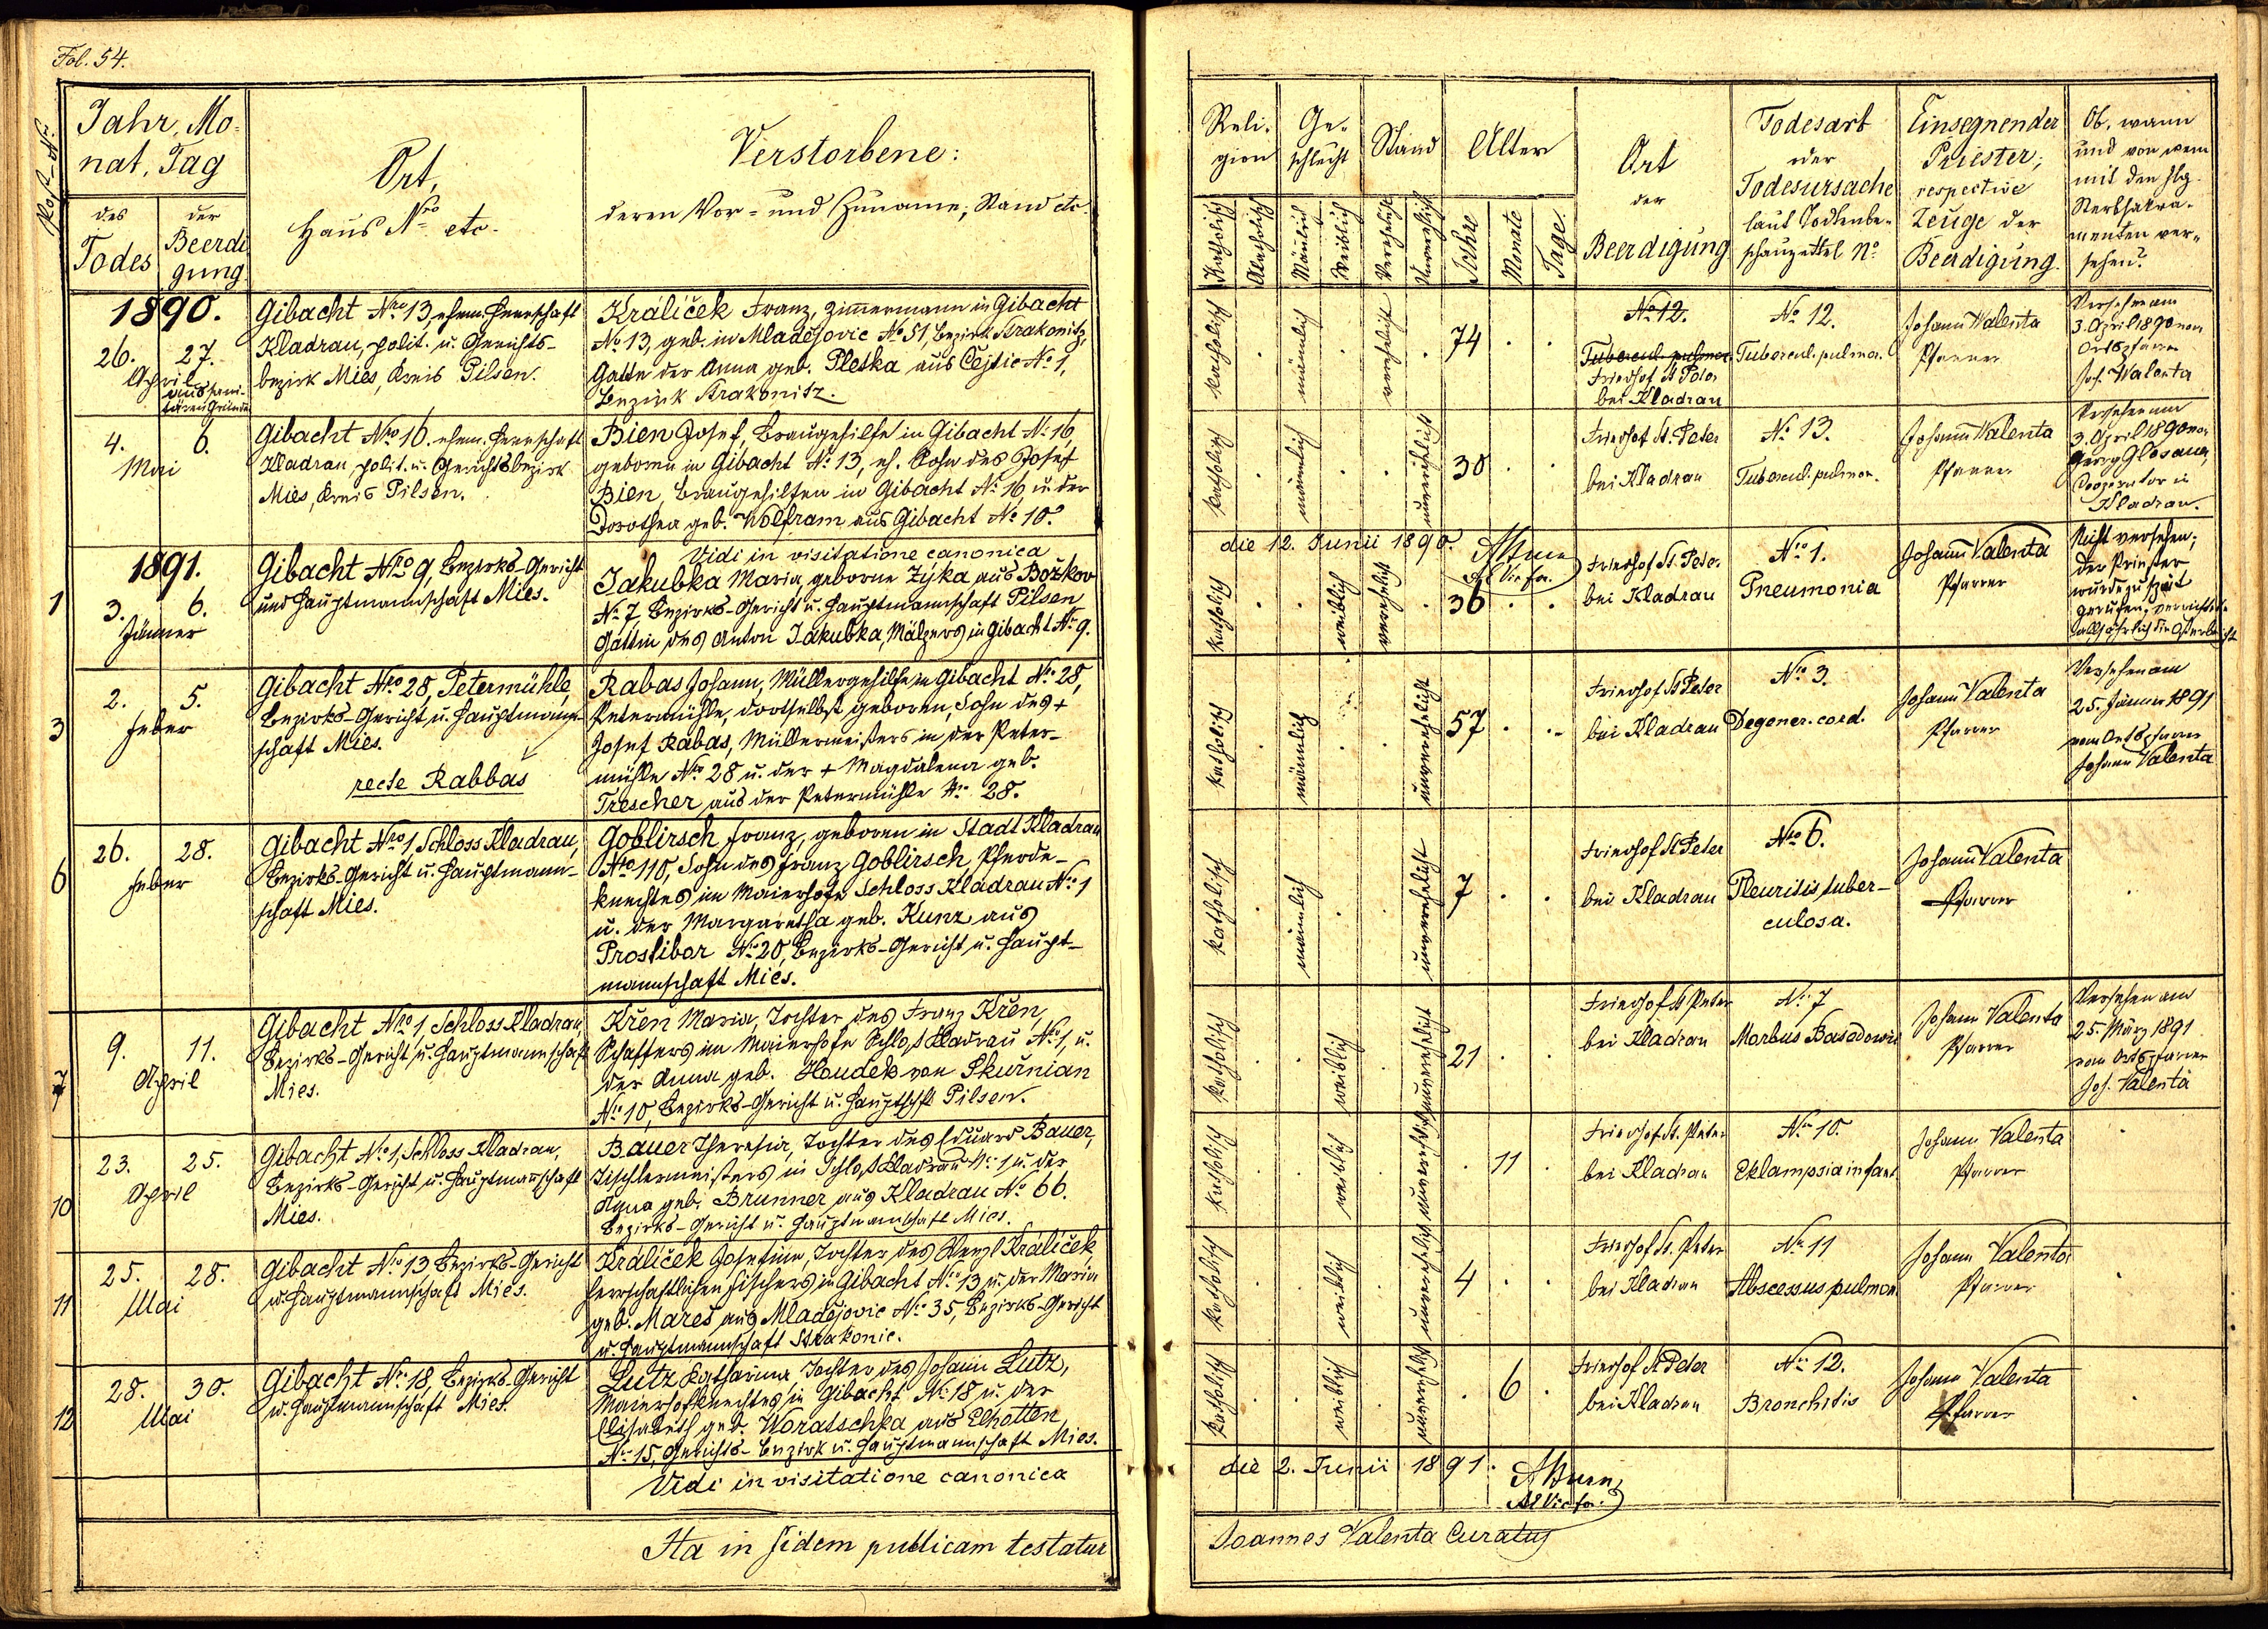 Fol. 54.
Post-Nr.
Jahr, Mo-
nat, Tag
des
Todes
der
Beerdi
gung
Ort,
Haus Nro etc.
Verstorbene:
deren Vor- und Zuname, Stand etc.
1890.
26. 27.
April
aus sani-
tären Gründen
Gibacht Nro 13, ehem. Herrschaft
Kladrau, polit. u. Gerichts-
bezirk Mies, Kreis Pilsen.
Králíček Franz, Zimmermann in Gibacht
No 13, geb. in Mladějovic No 51, Bezirk Strakonitz,
Gatte der Anna geb. Pletka aus Cejtic No 1,
Bezirk Strakonitz.
4. 6.
Mai
Gibacht Nro 16. ehem. Herrschaft
Kladrau, polit. u. Gerichtsbezirk
Mies, Kreis Pilsen.
Bien Josef, Braugehilfe in Gibacht No 16,
geboren in Gibacht No 13, eh. Sohn des Josef
Bien, Braugehilfen in Gibacht No 16, u. der
Dorothea geb. Wolfram aus Gibacht No 10.
Vidi in visitatione canonica
1891.
1
3. 6.
Jänner
Gibacht Nro 9, Bezirks-Gericht
und Hauptmannschaft Mies.
Jakubka Maria, geborne Zýka aus Božkov
No 7, Bezirks-Gericht u. Hauptmannschaft Pilsen
Gattin des Anton Jakubka, Mälzers in Gibacht No 9.
3
2. 5.
Feber
Gibacht Nro 28, Petermühle,
Bezirks-Gericht u. Hauptmann-
schaft Mies.
recte Rabbas
Rabas Johann, Müllergehilfe in Gibacht No 28,
Petermühle, dortselbst geboren, Sohn des +
Josef Rabas, Müllermeisters in der Peter-
mühle Nro 28 u. der + Magdalena geb.
Trescher aus der Petermühle No 28.
6
26. 28.
Feber
Gibacht Nro 1, Schloss Kladrau,
Bezirks-Gericht u. Hauptmann-
schaft Mies.
Goblirsch Franz, geboren in Stadt Kladrau
Nro 110, Sohn des Franz Goblirsch, Pferde-
knechtes im Maierhofe Schloss Kladrau No 1
u. der Margaretha geb. Kunz aus
Prostibor No 20, Bezirks-Gericht u. Haupt-
mannschaft Mies.
7
9. 11.
April
Gibacht Nro 1, Schloss Kladrau,
Bezirks-Gericht u. Hauptmannschaft
Mies.
Křen Maria, Tochter des Franz Křen,
Schaffers im Maierhofe Schloß Kladrau No 1, u.
der Anna geb. Houdek von Skurnian
No 10, Bezirks-Gericht u. Hauptschft Pilsen.
10
23. 25.
April
Gibacht No 1, Schloss Kladrau,
Bezirks-Gericht u. Hauptmannschaft
Mies.
Bauer Theresia, Tochter des Eduard Bauer,
Tischlermeisters in Schloß Kladrau No 1 u. der
Anna geb. Brunner aus Kladrau No 66.
Bezirks-Gericht u. Hauptmannschaft Mies.
11
25. 28.
Mai
Gibacht No 13 Bezirks-Gericht
u. Hauptmannschaft Mies.
Králíček Josefine, Tochter des Wenzl Králíček
herrschaftlichen Fischers in Gibacht No 13 u. der Maria
geb. Mareš aus Mladějovic No 35, Bezirks-Gericht
u. Hauptmannschaft Strakonic.
12
28. 30.
Mai
Gibacht No 18, Bezirks-Gericht
u. Hauptmannschaft Mies.
Lutz Katharina, Tochter des Johann Lutz,
Maierhofknechtes in Gibacht No 18 u. der
Elisabeth geb. Woratschka aus Elhotten
No 15, Gerichts-Bezirk u. Hauptmannschaft Mies.
Vidi in visitatione canonica
Ita in fidem publicam testatur
Reli-
gion
Katholisch
Akatholisch
Ge-
schlecht
Männlich
Weiblich
Stand
Verehelicht
Unverehelicht
Alter
Jahre
Monate
Tage
Ort
der
Beerdigung
Todesart
oder
Todesursache
laut Todtenbe-
schauzettel No
Einsegnender
Priester,
respective
Zeuge der
Beerdigung.
Ob, wann
und von wem
mit den hlg.
Sterbsakra-
menten ver-
sehen?
katholisch
männlich
verehelicht
74
No 12.
Tubercul. pulmon.
Friedhof St Peter
bei Kladrau
No 12.
Tubercul. pulmon.
Johann Walenta
Pfarrer
Versehen am
3. April 1890 vom
Ortspfarrer
Joh. Walenta
katholisch
männlich
unverehelicht
30
Friedhof St. Peter
bei Kladrau
No 13.
Tubercul. pulmon.
Johann Walenta
Pfarrer
Versehen am
3. April 1890 von
Georg Glosauer,
Cooperator in
Kladrau.
die 12. Junii 1890.
katholisch
weiblich
verehelicht
36
Friedhof St. Peter
bei Kladrau
Nro 1.
Pneumonia
Johann Valenta
Pfarrer
Nicht versehen;
der Priester
wurde zu spät
gerufen; verrichtete
alljährlich die Osterbeicht
katholisch
männlich
unverehelicht
57
Friedhof St Peter
bei Kladrau
No 3.
Degener. cord.
Johann Valenta
Pfarrer
Versehen am
25. Jänner 1891
vom Ortspfarrer
Johann Valenta
katholisch
männlich
unverehelicht
7
Friedhof St Peter
bei Kladrau
Nro 6.
Pleuritis tuber-
culosa.
Johann Valenta
Pfarrer
katholisch
weiblich
unverehelicht
21
Friedhof St Peter
bei Kladrau
No 7
Morbus Basedowii
Johann Valenta
Pfarrer
Versehen am
25. März 1891
vom Ortspfarrer
Joh. Valenta
katholisch
weiblich
unverehelicht
11
Friedhof St. Peter
bei Kladrau
No 10.
Eklampsia infant
Johann Valenta
Pfarrer
katholisch
weiblich
unverehelicht
4
Friedhof St. Peter
bei Kladrau
No 11
Abscessus pulmon.
Johann Valenta
Pfarrer
katholisch
weiblich
unverehelicht
6
Friedhof St Peter
bei Kladrau
No 12.
Bronchitis
Johann Valenta
Pfarrer
die 2. Junii 1891.
Joannes Valenta Curatus